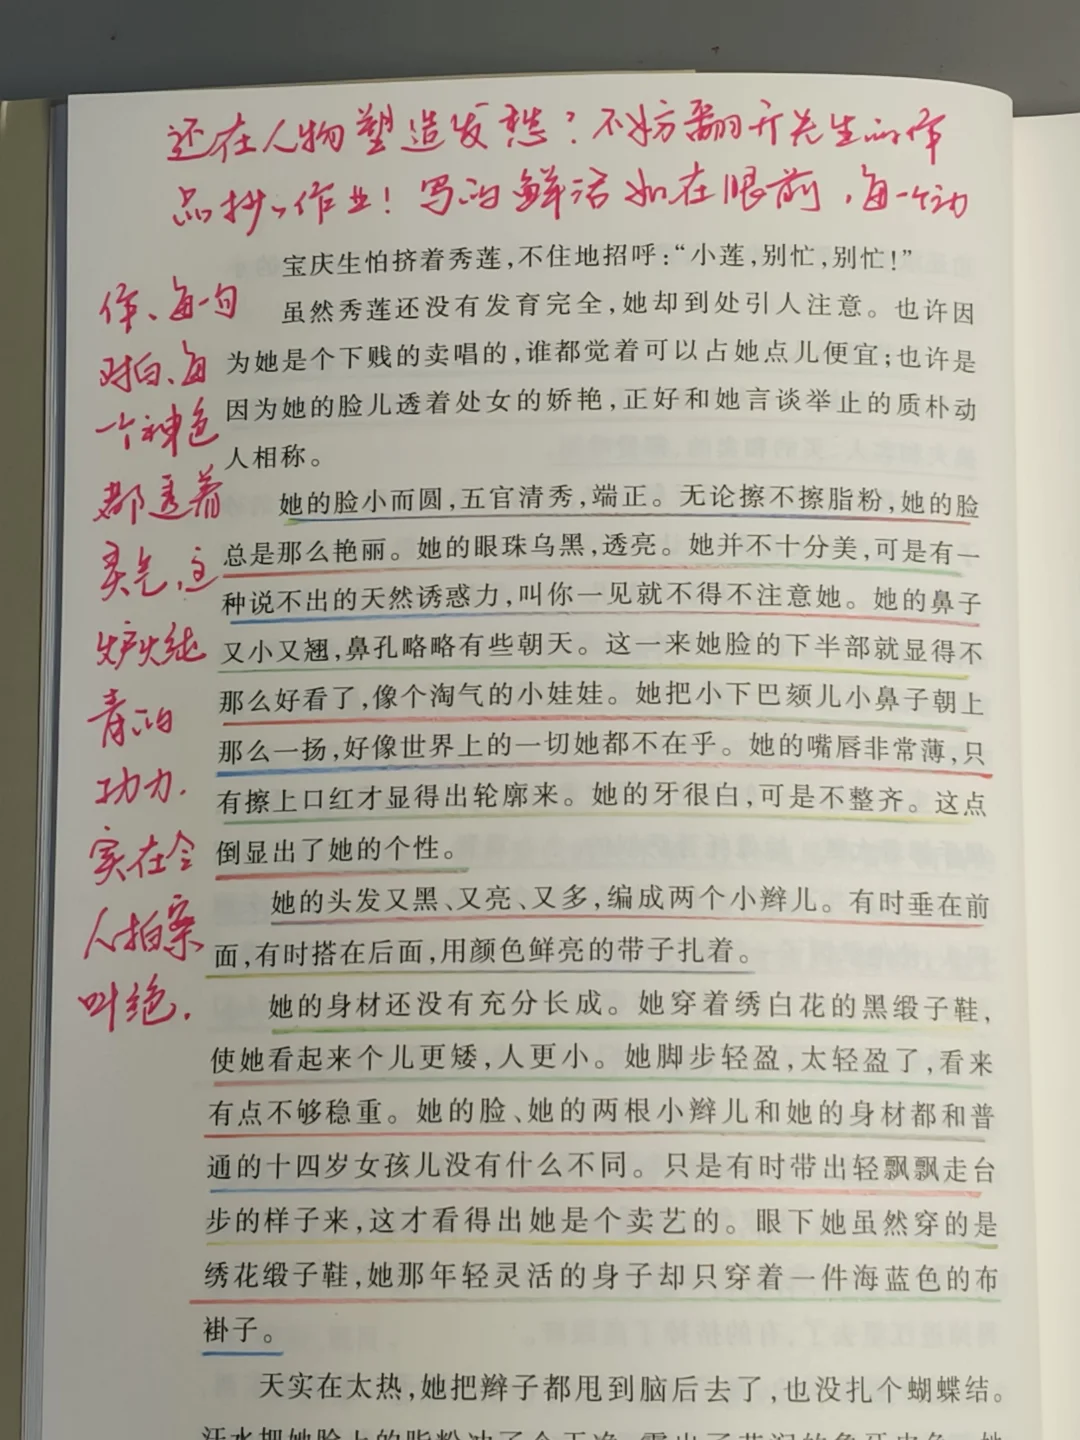 还在人物塑造发愁？不妨翻开先生的作
品抄抄作业！写的鲜活如在眼前，每一个动
作、每一句
对白、每
一个神色
都透着
灵气，这
炉火纯
青的
功力．
实在令
人拍案
叫绝．
宝庆生怕挤着秀莲，不住地招呼：“小莲，别忙，别忙！”
虽然秀莲还没有发育完全，她却到处引人注意。也许因
为她是个下贱的卖唱的，谁都觉着可以占她点儿便宜；也许是
因为她的脸儿透着处女的娇艳，正好和她言谈举止的质朴动
人相称。
她的脸小而圆，五官清秀，端正。无论擦不擦脂粉，她的脸
总是那么艳丽。她的眼珠乌黑，透亮。她并不十分美，可是有一
种说不出的天然诱惑力，叫你一见就不得不注意她。她的鼻子
又小又翘，鼻孔略略有些朝天。这一来她脸的下半部就显得不
那么好看了，像个淘气的小娃娃。她把小下巴颏儿小鼻子朝上
那么一扬，好像世界上的一切她都不在乎。她的嘴唇非常薄，只
有擦上口红才显得出轮廓来。她的牙很白，可是不整齐。这点
倒显出了她的个性。
她的头发又黑、又亮、又多，编成两个小辫儿。有时垂在前
面，有时搭在后面，用颜色鲜亮的带子扎着。
她的身材还没有充分长成。她穿着绣白花的黑缎子鞋，
使她看起来个儿更矮，人更小。她脚步轻盈，太轻盈了，看来
有点不够稳重。她的脸、她的两根小辫儿和她的身材都和普
通的十四岁女孩儿没有什么不同。只是有时带出轻飘飘走台
步的样子来，这才看得出她是个卖艺的。眼下她虽然穿的是
绣花缎子鞋，她那年轻灵活的身子却只穿着一件海蓝色的布
褂子。
天实在太热，她把辫子都甩到脑后去了，也没扎个蝴蝶结。